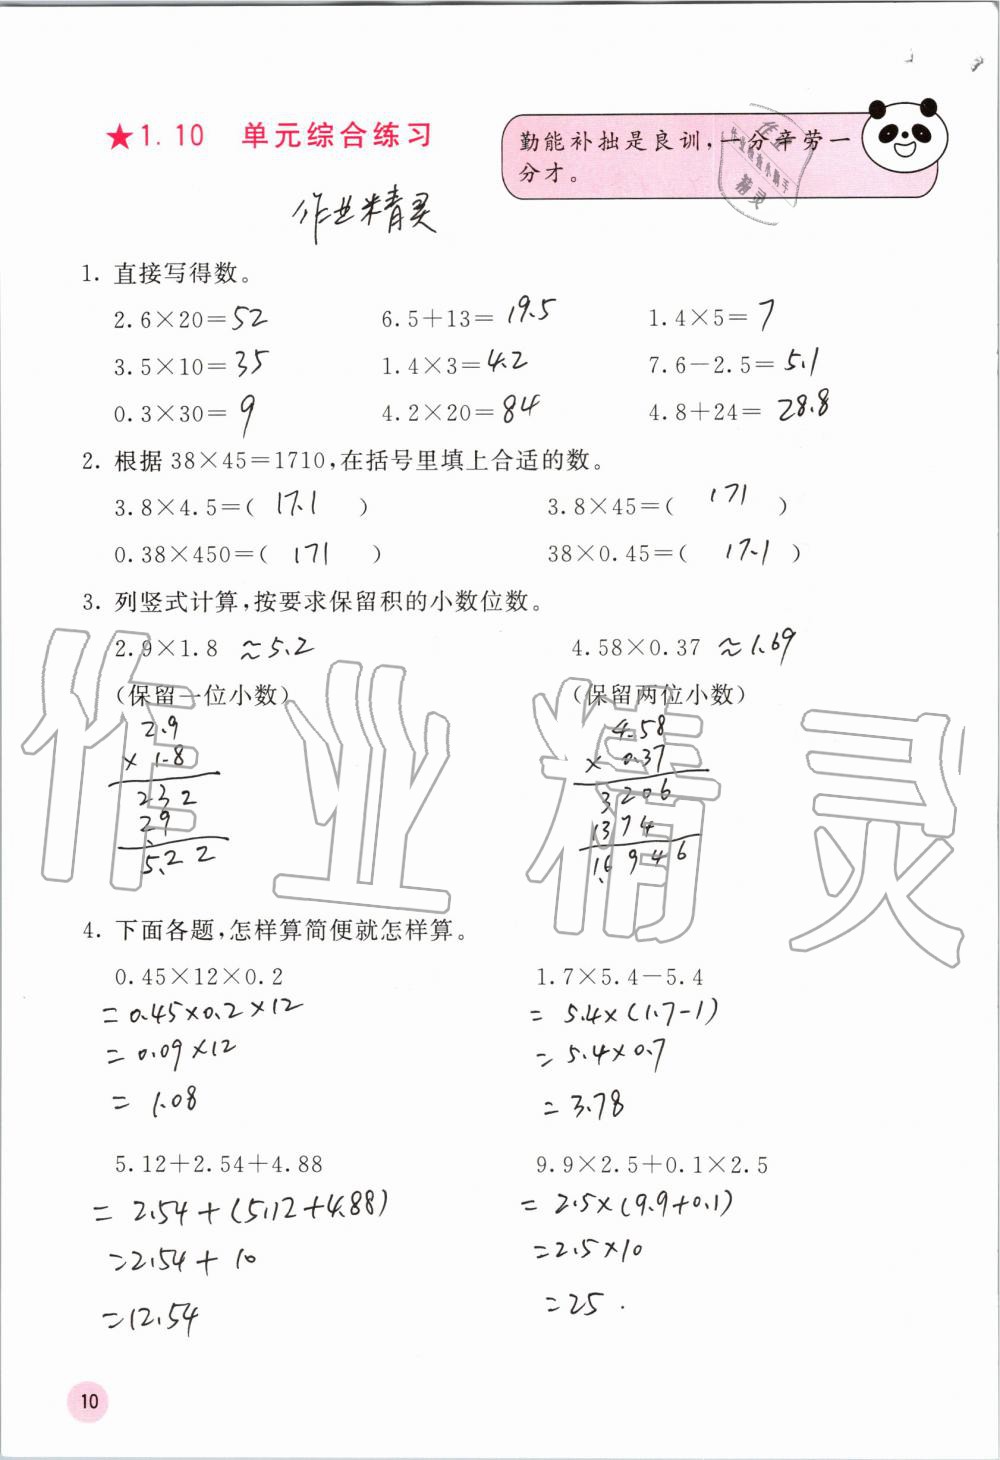 ★1.10 单元综合练习
勤能补拙是良训,一分辛劳一
分才。
作业精灵
1. 直接写得数。
2.6×20=52 6.5+13=19.5 1.4×5=7
3.5×10=35 1.4×3=4.2 7.6-2.5=5.1
0.3×30=9 4.2×20=84 4.8+24=28.8
2. 根据38×45=1710,在括号里填上合适的数。
3.8×4.5=( 17.1 ) 3.8×45=( 171 )
0.38×450=( 171 ) 38×0.45=( 17.1 )
3. 列竖式计算,按要求保留积的小数位数。
2.9×1.8 ≈5.2 4.58×0.37 ≈1.69
(保留一位小数) (保留两位小数)
2.9 4.58
× 1.8 × 0.37
232 3206
29 1374
5.22 1.6946
4. 下面各题,怎样算简便就怎样算。
0.45×12×0.2 1.7×5.4-5.4
=0.45×0.2×12 =5.4×(1.7-1)
=0.09×12 =5.4×0.7
=1.08 =3.78
5.12+2.54+4.88 9.9×2.5+0.1×2.5
=2.54+(5.12+4.88) =2.5×(9.9+0.1)
=2.54+10 =2.5×10
=12.54 =25.
10
作业精灵